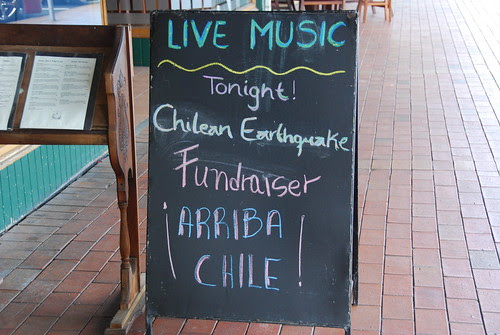 LIVE MUSIC
Tonight!
Chilean Earthquake
Fundraiser
¡ARRIBA
CHILE!